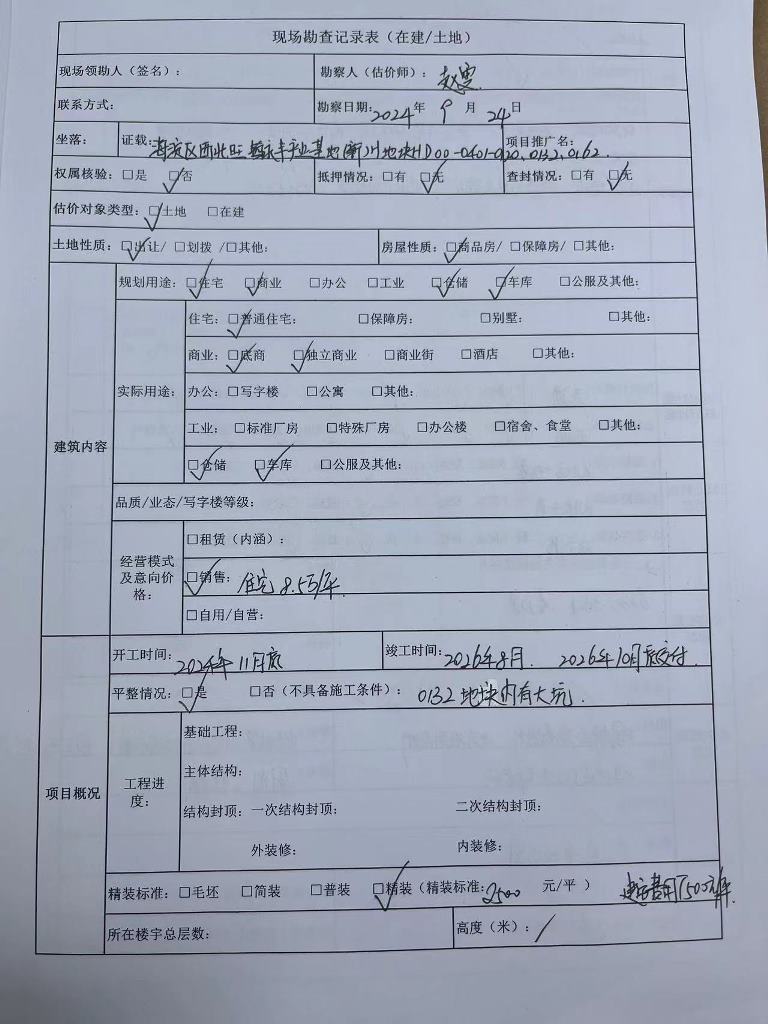 现场勘查记录表（在建/土地）
现场领勘人（签名）： 勘察人（估价师）： 赵雯
联系方式： 勘察日期：2024年 9 月 24日
坐落： 证载：海淀区西北旺镇永丰产业基地（新）川地块HD00-0401-0120、0132、0162. 项目推广名：
权属核验：☐是 ☑否 抵押情况：☐有 ☑无 查封情况：☐有 ☑无
估价对象类型：☑土地 ☐在建
土地性质：☑出让/ ☐划拨 /☐其他： 房屋性质：☑商品房/ ☐保障房/ ☐其他：
建筑内容
规划用途：☑住宅 ☑商业 ☐办公 ☐工业 ☑仓储 ☑车库 ☐公服及其他：
实际用途：
住宅：☑普通住宅： ☐保障房： ☐别墅： ☐其他：
商业：☑底商 ☑独立商业 ☐商业街 ☐酒店 ☐其他：
办公：☐写字楼 ☐公寓 ☐其他：
工业：☐标准厂房 ☐特殊厂房 ☐办公楼 ☐宿舍、食堂 ☐其他：
☑仓储 ☑车库 ☐公服及其他：
品质/业态/写字楼等级：
经营模式及意向价格：
☐租赁（内涵）：
☑销售： 住宅 8.5万/平
☐自用/自营：
项目概况
开工时间：2024年 11月底 竣工时间：2026年8月. 2026年10月底交付.
平整情况：☑是 ☐否（不具备施工条件）： 0132地块内有大坑.
工程进度：
基础工程：
主体结构：
结构封顶：一次结构封顶： 二次结构封顶：
外装修： 内装修：
精装标准：☐毛坯 ☐简装 ☐普装 ☑精装（精装标准：2500 元/平 ） 费用 7500元/平.
所在楼宇总层数： 高度（米）：/